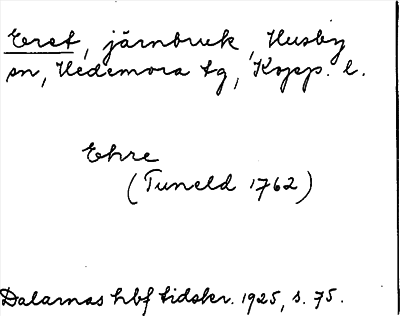 Eret, järnbruk, Husby
sn, Hedemora tg, Kopp. l.
Ehre
(Tuneld 1762)
Dalarnas hbf tidskr. 1925, s. 75.